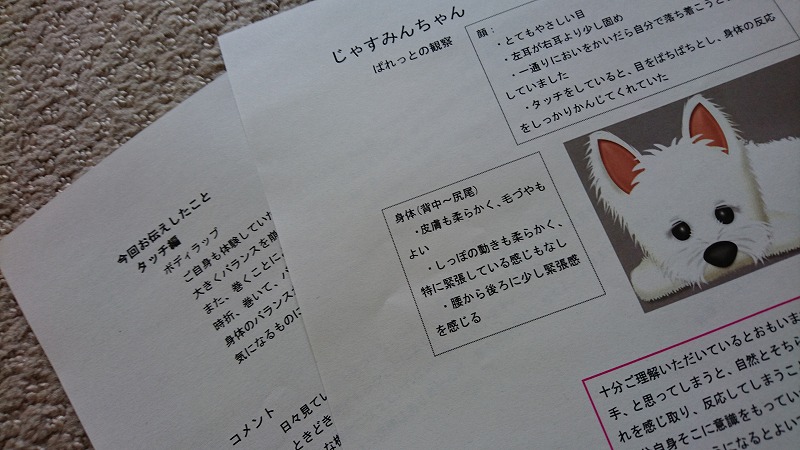 じゃすみんちゃん
ぱれっとの観察
顔:
・とてもやさしい目
・左耳が右耳より少し固め
・一通りにおいをかいだら自分で落ち着こうと
していました
・タッチをしていると、目をぱちぱちとし、身体の反応
をしっかりかんじてくれていた
身体(背中~尻尾)
・皮膚も柔らかく、毛づやも
よい
・しっぽの動きも柔らかく、
特に緊張している感じもなし
・腰から後ろに少し緊張感
を感じる
十分ご理解いただいているとおもいま
手、と思ってしまうと、自然とそちら
れを感じ取り、反応してしまうこと
自身そこに意識をもってい
うになるとよい
今回お伝えしたこと
タッチ編
ボディラップ
ご自身も体験していた
大きくバランスを
また、巻くことに
時折、巻いて、
身体のバランス
気になるものに
コメント
日々見てい
ときどき